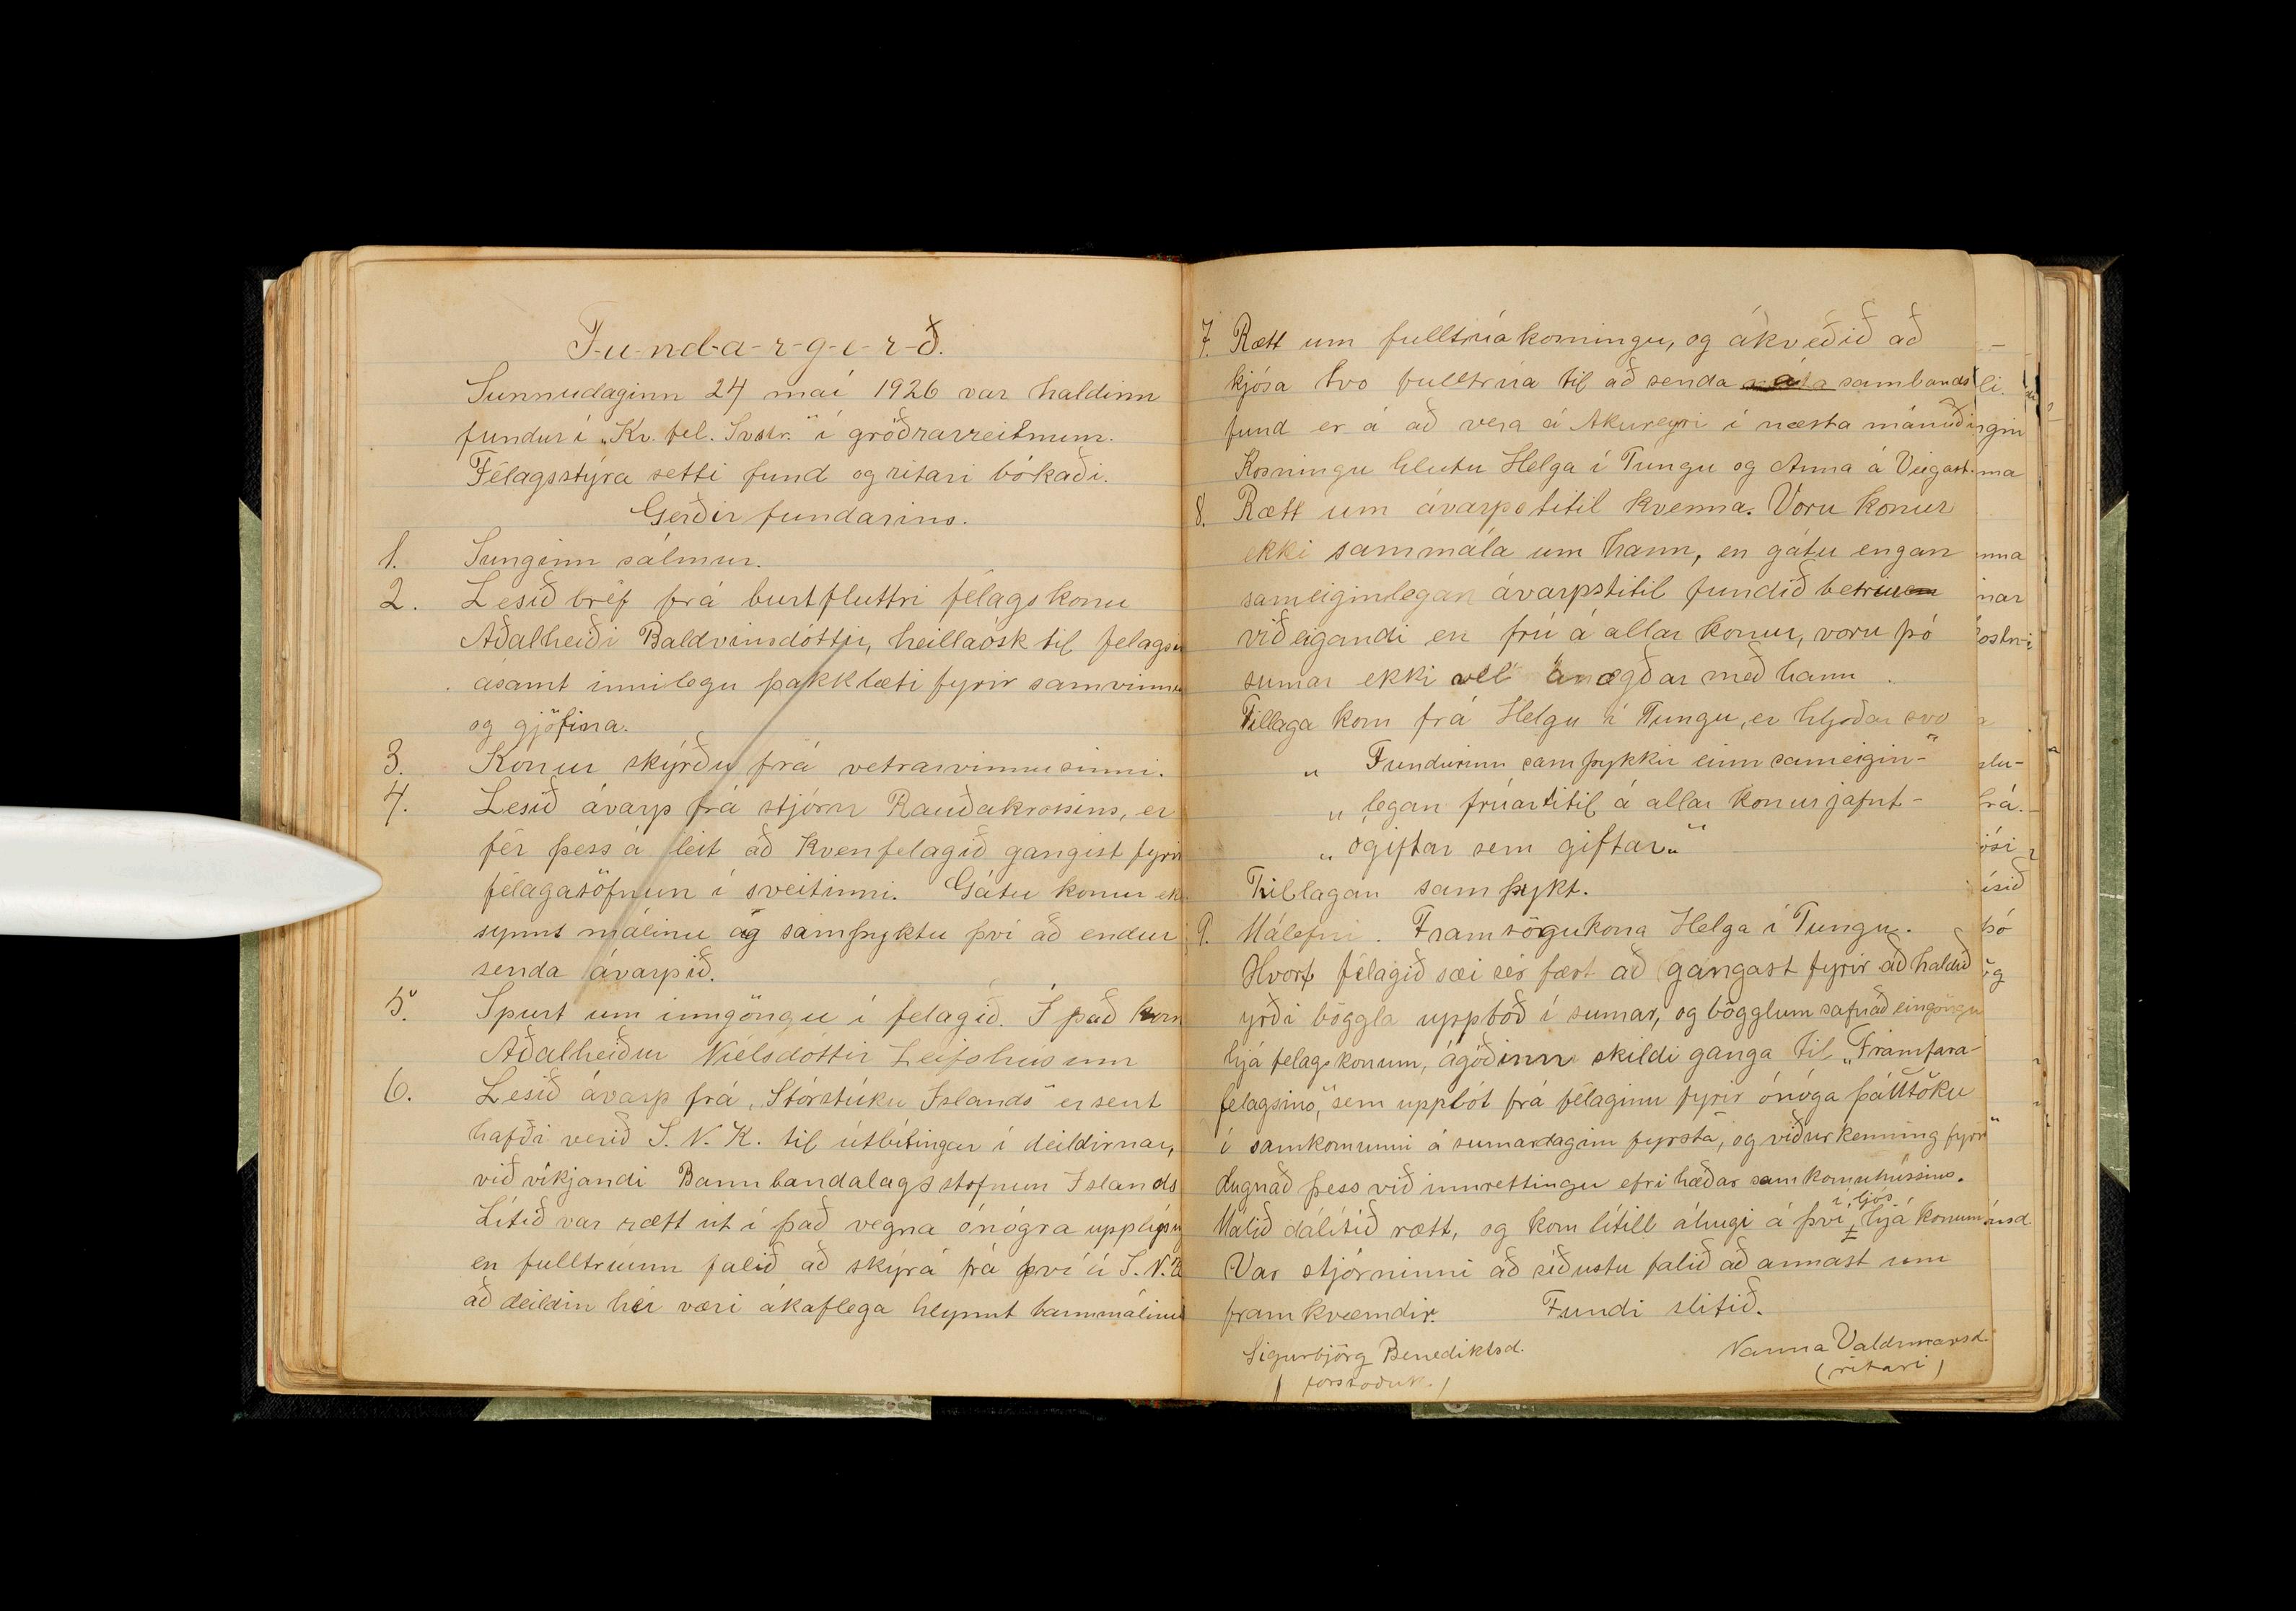 F-u-n-d-a-r-g-e-r-ð.
Sunnudaginn 24 maí 1926 var haldinn
fundur í „Kv. fel. Svstr.“ í gróðrarreitnum.
Félagsstýra setti fund og ritari bókaði.
Gerðir fundarins.
1. Sunginn sálmur.
2. Lesið bréf frá burtfluttri félagskonu
Aðalheiði Baldvinsdóttir, heillaósk til felagsin
ásamt innilegu þakklæti fyrir samvinnu
og gjöfina.
3. Konur skýrðu frá vetrarvinnu sinni.
4. Lesið ávarp frá stjórn Rauðakrossins, er
fer þess á leit að Kvenfelagið gangist fyrir
félagasöfnun í sveitinni. Gátu konur ek
synnt málinu og samþyktu því að endur
senda ávarpið.
5. Spurt um inngöngu í felagið. Í það kom
Aðalheiður Níelsdóttir Leifshúsum
6. Lesið ávarp frá „Stórstúku Islands“ er sent
hafði verið S. N. K. til útbítingar í deildirnar,
við víkjandi Bannbandalagsstofnun Islands
Lítið var rætt út í það vegna ónógra upplýsing
en fulltrúunn falið að skýra frá því á S. N. K
að deildin hér væri ákaflega hlynnt bannmálinu
7. Rætt um fulltrúa kosningu, og ákveðið að
kjósa tvo fulltrúa til að senda á sambands
fund er á að vera á Akureyri í næsta mánuði
Kosningu hlutu Helga í Tungu og Anna á Veigast.
8. Rætt um ávarpstitil kvenna. Voru konur
ekki sammála um hann, en gátu engan
sameiginlegan ávarpstitil fundið betur
viðeigandi en frú á allar konur, voru þó
sumar ekki vel ánægðar með hann.
Tillaga kom frá Helgu í Tungu, er hljoðar svo
„ Fundurinn samþykkir einn sameigin-“
„ legan frúartitil á allar konur jafnt-
„ ógiftar sem giftar“
Tillagan samþykt.
9. Málefni. Framsögukona Helga í Tungu.
Hvort félagið sæi sér fært að gangast fyrir að haldið
yrði böggla uppboð í sumar, og bögglum safnað eingöngu
hjá felagskonum, ágóðinn skildi ganga til „Framfara-
felagsins,“ sem uppbót frá félaginu fyrir ónóga þátttöku
í samkomunni á sumardaginn fyrsta, og viðurkenning fyrir
dugnað þess við innrettingu efri hæðar samkomuhússins.
Malið dálítið rætt, og kom lítill áhugi á því í ljós hjá konum
Var stjórninni að síðustu falið að annast um
framkvæmdir. Fundi slitið.
Sigurbjörg Benediktsd. Nanna Valdimarsd.
(forstöðuk.) (ritari)